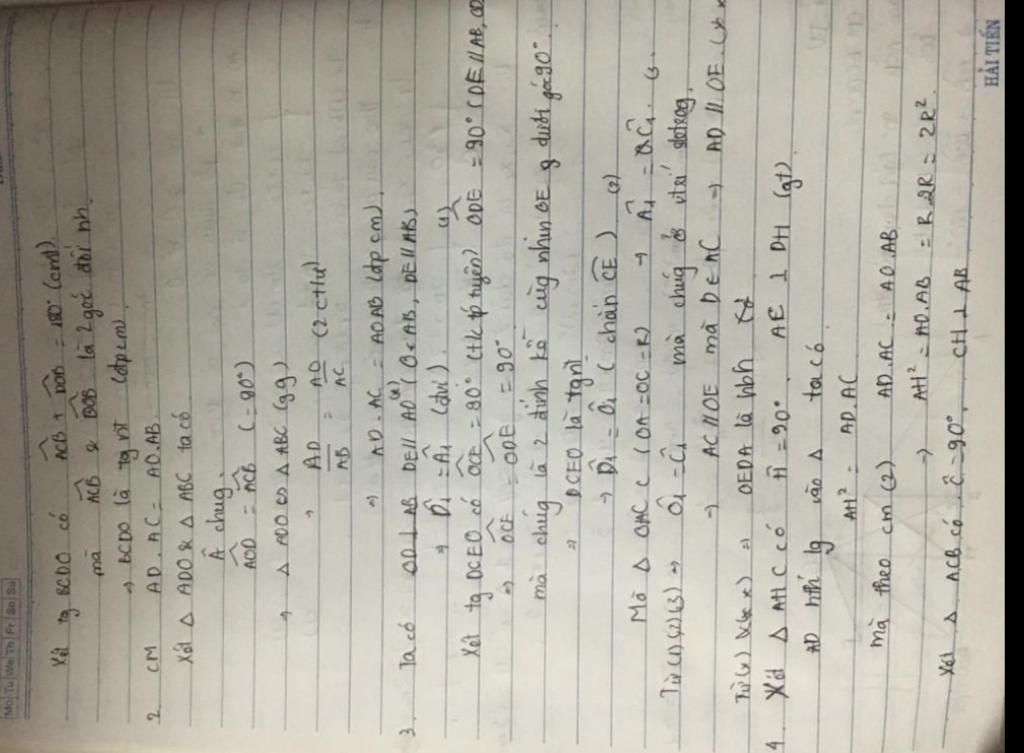 Mo Tu We Th Fr Sa Su
Xét tg BCDO có ACB + DOB = 180° (cmt)
mà ACB & DOB là 2 góc đối nh.
→ BCDO là tg nt (đpcm)
2. CM AD.AC = AO.AB.
Xét Δ ADO & Δ ABC ta có
 chung.
AOD = ACB (= 90°)
→ Δ ADO ∽ Δ ABC (g.g)
→ AD/AB = AO/AC (2 cttư)
⇒ AD.AC = AO.AB (đpcm).
3. Ta có OD ⊥ AB DE // AO (*) (O ∈ AB, DE // AB)
⇒ D̂1 = Â1 (đvị). (1)
Xét tg DCEO có OCE = 90° (t/c tiếp tuyến) ODE = 90° (DE // AB, OD
⇒ OCE = ODE = 90°
mà chúng là 2 đỉnh kề cùng nhìn OE g dưới góc 90°
⇒ DCEO là tgnt
→ D̂1 = Ô1 (chắn CE) (2)
Mà Δ OAC C (OA = OC = R) → Â1 = Ĉ1. (3)
Từ (1)(2)(3) ⇒ Ô1 = Ĉ1 mà chúng ở vtrí sletrog.
→ AC // OE mà D ∈ AC ⇒ AD // OE (**)
Từ (*) (**) ⇒ OEDA là hbh
4. Xét Δ AHC có Ĥ = 90° AC ⊥ DH (gt)
AD htl lg vào Δ ta có
AH² = AD.AC
Mà theo cm (2) AD.AC = AO.AB
⇒ AH² = AO.AB = R.2R = 2R²
Xét Δ ACB có Ĉ = 90°, CH ⊥ AB
HẢI TIẾN